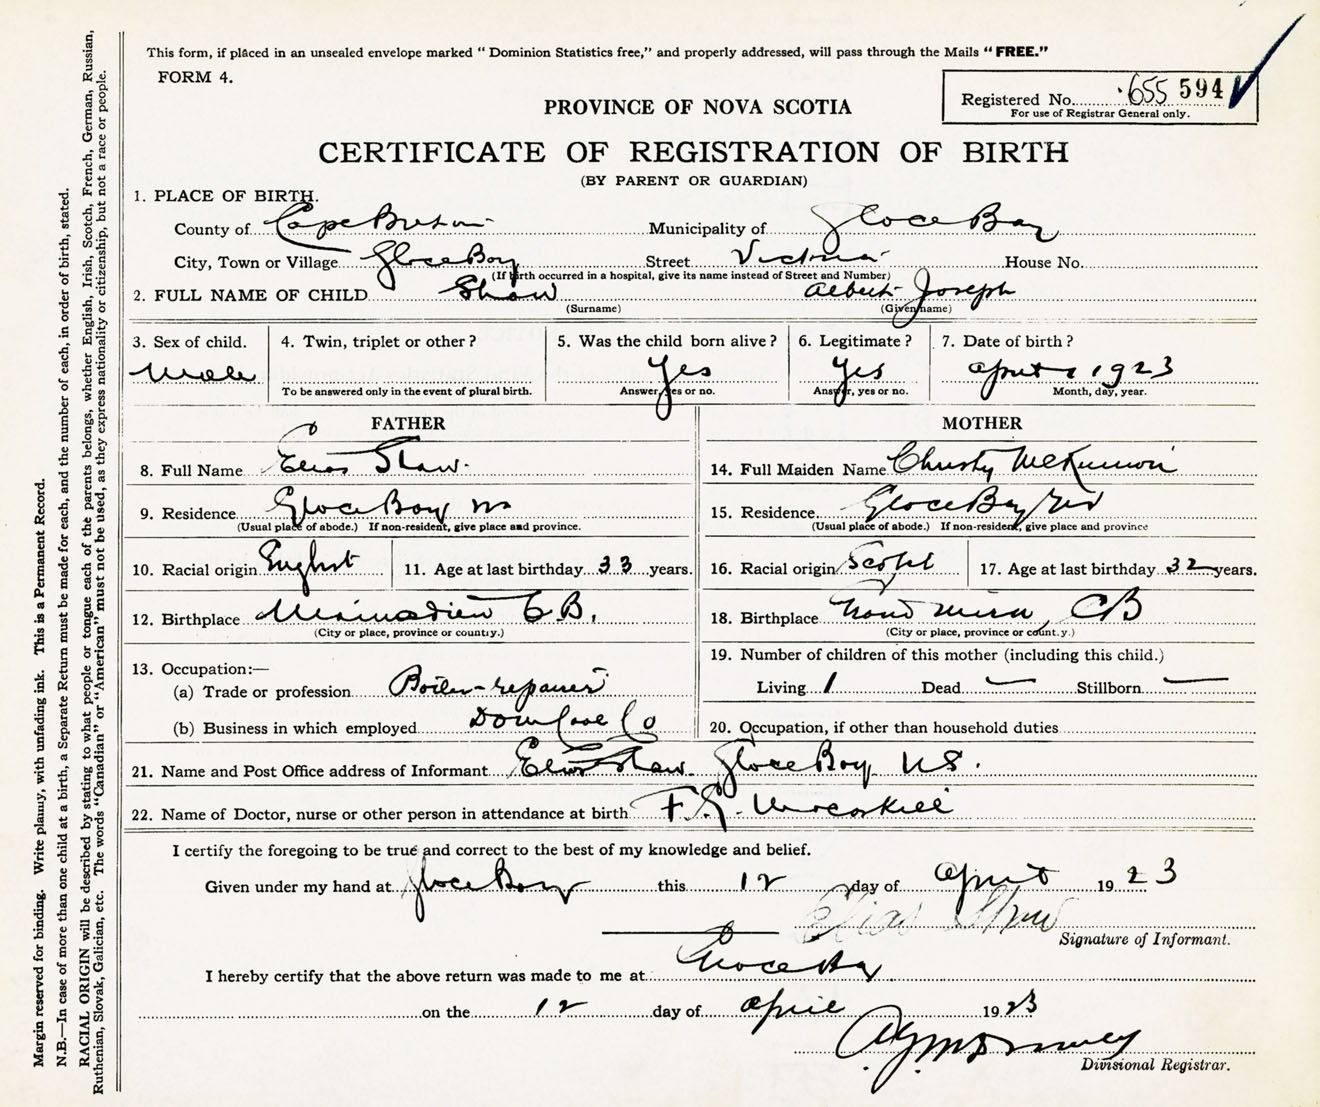 This form, if placed in an unsealed envelope marked "Dominion Statistics free," and properly addressed, will pass through the Mails "FREE."
FORM 4.
Registered No. 655 594
For use of Registrar General only.
PROVINCE OF NOVA SCOTIA
CERTIFICATE OF REGISTRATION OF BIRTH
(BY PARENT OR GUARDIAN)
1. PLACE OF BIRTH.
County of Cape Breton Municipality of Glace Bay
City, Town or Village Glace Bay Street Victoria House No.
(If birth occurred in a hospital, give its name instead of Street and Number)
2. FULL NAME OF CHILD Shaw Albert Joseph
(Surname) (Given name)
3. Sex of child. 4. Twin, triplet or other? 5. Was the child born alive? 6. Legitimate? 7. Date of birth?
Male Yes Yes April 1 1923
To be answered only in the event of plural birth. Answer, yes or no. Answer, yes or no. Month, day, year.
FATHER MOTHER
8. Full Name Elias Shaw. 14. Full Maiden Name Christy McKinnon
9. Residence Glace Bay NS 15. Residence Glace Bay NS
(Usual place of abode.) If non-resident, give place and province. (Usual place of abode.) If non-resident, give place and province
10. Racial origin English 11. Age at last birthday 33 years. 16. Racial origin Scotch 17. Age at last birthday 32 years.
12. Birthplace Mainadieu C.B. 18. Birthplace Mira, CB
(City or place, province or country.) (City or place, province or country.)
13. Occupation:— 19. Number of children of this mother (including this child.)
(a) Trade or profession Boiler-repairer Living 1 Dead — Stillborn —
(b) Business in which employed Dom Coal Co 20. Occupation, if other than household duties
21. Name and Post Office address of Informant Elias Shaw Glace Bay N.S.
22. Name of Doctor, nurse or other person in attendance at birth F. McCaskill
I certify the foregoing to be true and correct to the best of my knowledge and belief.
Given under my hand at Glace Bay this 12 day of April 1923
Elias Shaw
Signature of Informant.
I hereby certify that the above return was made to me at Glace Bay
on the 12 day of April 1923
Divisional Registrar.
Margin reserved for binding. Write plainly, with unfading ink. This is a Permanent Record.
N.B.—In case of more than one child at a birth, a Separate Return must be made for each, and the number of each, in order of birth, stated.
RACIAL ORIGIN will be described by stating to what people or tongue each of the parents belongs, whether English, Irish, Scotch, French, German, Russian,
Ruthenian, Slovak, Galician, etc. The words "Canadian" or "American" must not be used, as they express nationality or citizenship, but not a race or people.